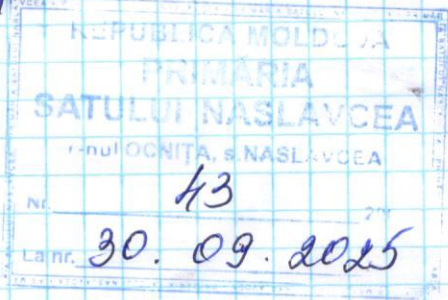 REPUBLICA MOLDOVA
PRIMĂRIA
SATULUI NASLAVCEA
r-nul OCNIȚA, s. NASLAVCEA
Nr. 43
La nr. 30. 09. 2025